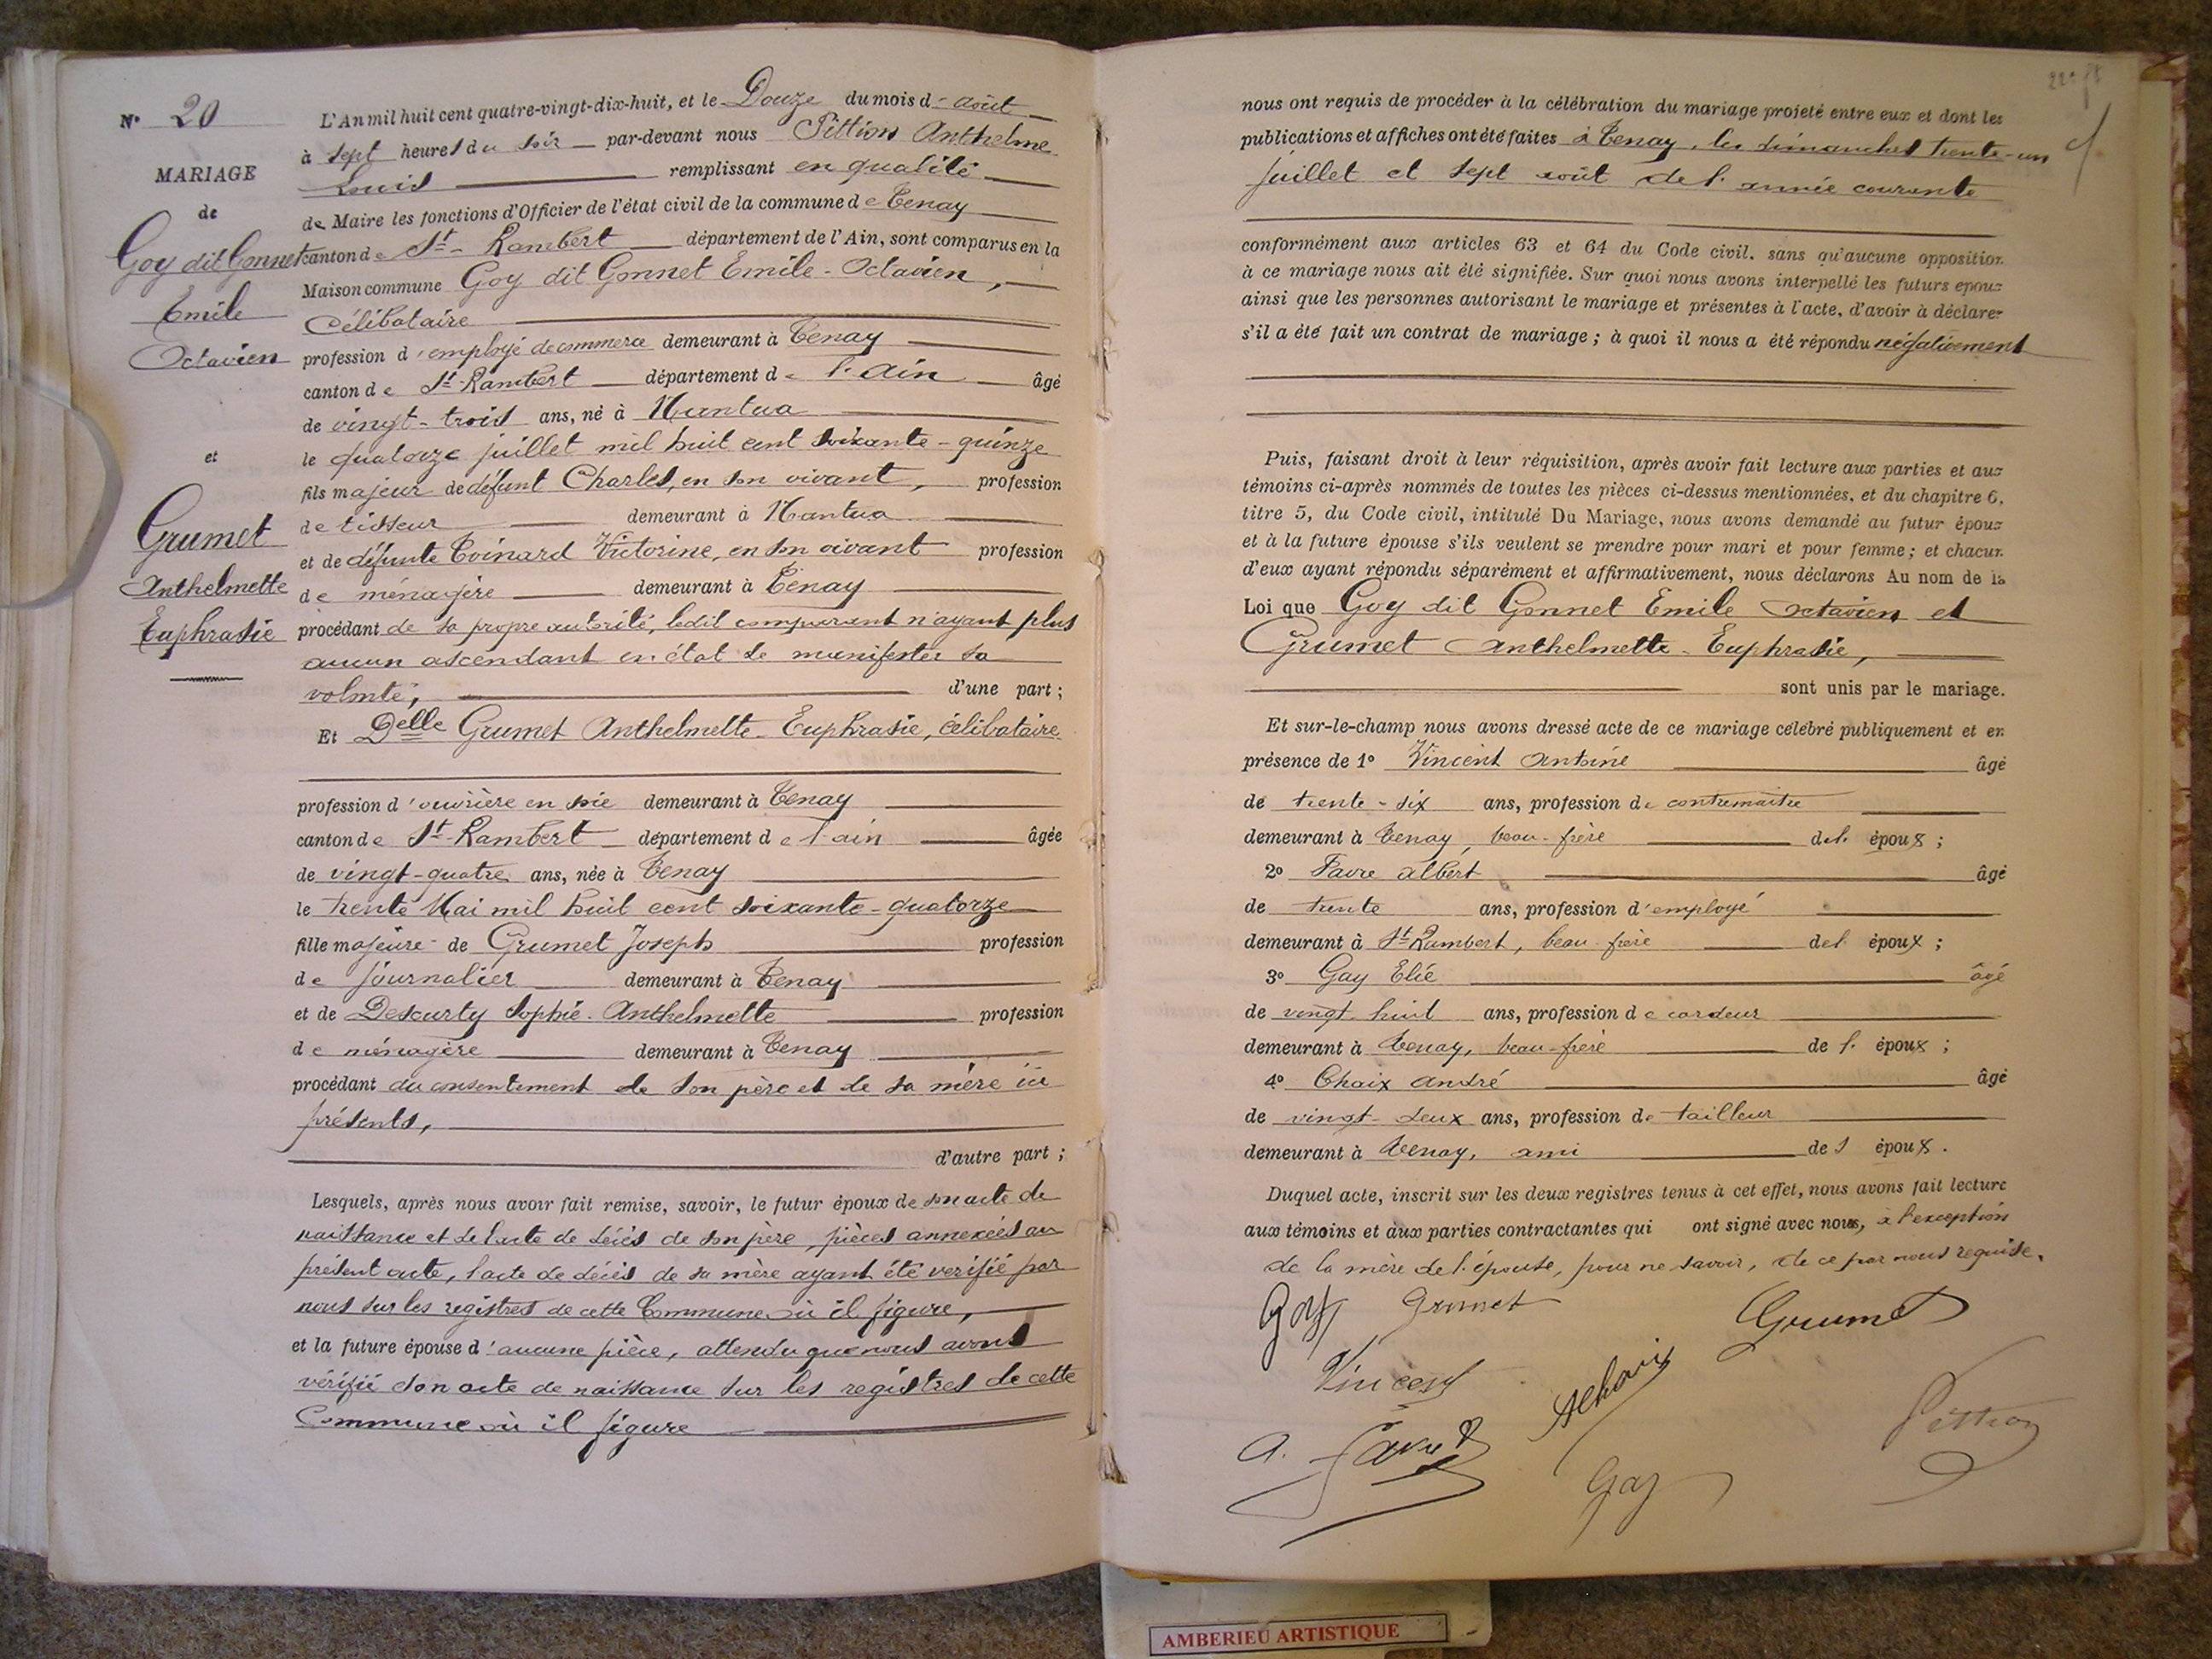 N° 20
MARIAGE
de
Goy dit Gonnet
Emile
Octavien
et
Grumet
Anthelmette
Euphrasie
L'An mil huit cent quatre-vingt-dix-huit, et le Douze du mois d' août
à sept heures du soir par-devant nous Pittion Anthelme
Louis remplissant en qualité
de Maire les fonctions d'Officier de l'état civil de la commune de Tenay
canton de St-Rambert département de l'Ain, sont comparus en la
Maison commune Goy dit Gonnet Emile-Octavien,
Célibataire
profession d'employé de commerce demeurant à Tenay
canton de St-Rambert département de l'Ain âgé
de vingt-trois ans, né à Nantua
le quatorze juillet mil huit cent soixante-quinze
fils majeur de défunt Charles, en son vivant, profession
de tisseur demeurant à Nantua
et de défunte Toinard Victorine, en son vivant profession
de ménagère demeurant à Tenay
procédant de sa propre autorité, ledit comparant n'ayant plus
aucun ascendant en état de manifester sa
volonté, d'une part ;
Et Delle Grumet Anthelmette-Euphrasie, célibataire
profession d'ouvrière en soie demeurant à Tenay
canton de St-Rambert département de l'ain âgée
de vingt-quatre ans, née à Tenay
le trente Mai mil huit cent soixante-quatorze
fille majeure de Grumet Joseph profession
de journalier demeurant à Tenay
et de Descurty Sophie-Anthelmette profession
de ménagère demeurant à Tenay
procédant du consentement de son père et de sa mère ici
présents,
d'autre part ;
Lesquels, après nous avoir fait remise, savoir, le futur époux de son acte de
naissance et de l'acte de décès de son père, pièces annexées au
présent acte, l'acte de décès de sa mère ayant été verifié par
nous sur les registres de cette Commune où il figure,
et la future épouse d'aucune pièce, attendu que nous avons
vérifié son acte de naissance sur les registres de cette
Commune où il figure
nous ont requis de procéder à la célébration du mariage projeté entre eux et dont les
publications et affiches ont été faites à Tenay, les dimanches trente-un
juillet et sept août de l'année courante
conformément aux articles 63 et 64 du Code civil, sans qu'aucune opposition
à ce mariage nous ait été signifiée. Sur quoi nous avons interpellé les futurs epoux
ainsi que les personnes autorisant le mariage et présentes à l'acte, d'avoir à déclarer
s'il a été fait un contrat de mariage ; à quoi il nous a été répondu négativement
Puis, faisant droit à leur réquisition, après avoir fait lecture aux parties et aux
témoins ci-après nommés de toutes les pièces ci-dessus mentionnées, et du chapitre 6,
titre 5, du Code civil, intitulé Du Mariage, nous avons demandé au futur époux
et à la future épouse s'ils veulent se prendre pour mari et pour femme ; et chacun
d'eux ayant répondu séparément et affirmativement, nous déclarons Au nom de la
Loi que Goy dit Gonnet Emile Octavien et
Grumet Anthelmette-Euphrasie,
sont unis par le mariage.
Et sur-le-champ nous avons dressé acte de ce mariage célébré publiquement et en
présence de 1° Vincent Antoine âgé
de trente-six ans, profession de contremaître
demeurant à Tenay, beau-frère de l' époux ;
2° Favre Albert âgé
de trente ans, profession d'employé
demeurant à St-Rambert, beau-frère de l' époux ;
3° Gay Elie âgé
de vingt-huit ans, profession de cardeur
demeurant à Tenay, beau-frère de l' époux ;
4° Chaix André âgé
de vingt-deux ans, profession de tailleur
demeurant à Tenay, ami de l' époux.
Duquel acte, inscrit sur les deux registres tenus à cet effet, nous avons fait lecture
aux témoins et aux parties contractantes qui ont signé avec nous, à l'exception
de la mère de l'épouse, pour ne savoir, de ce par nous requise.
Goy Grumet Grumet
Vincent AChaix
A. Favre Pittion
Gay
AMBERIEU ARTISTIQUE